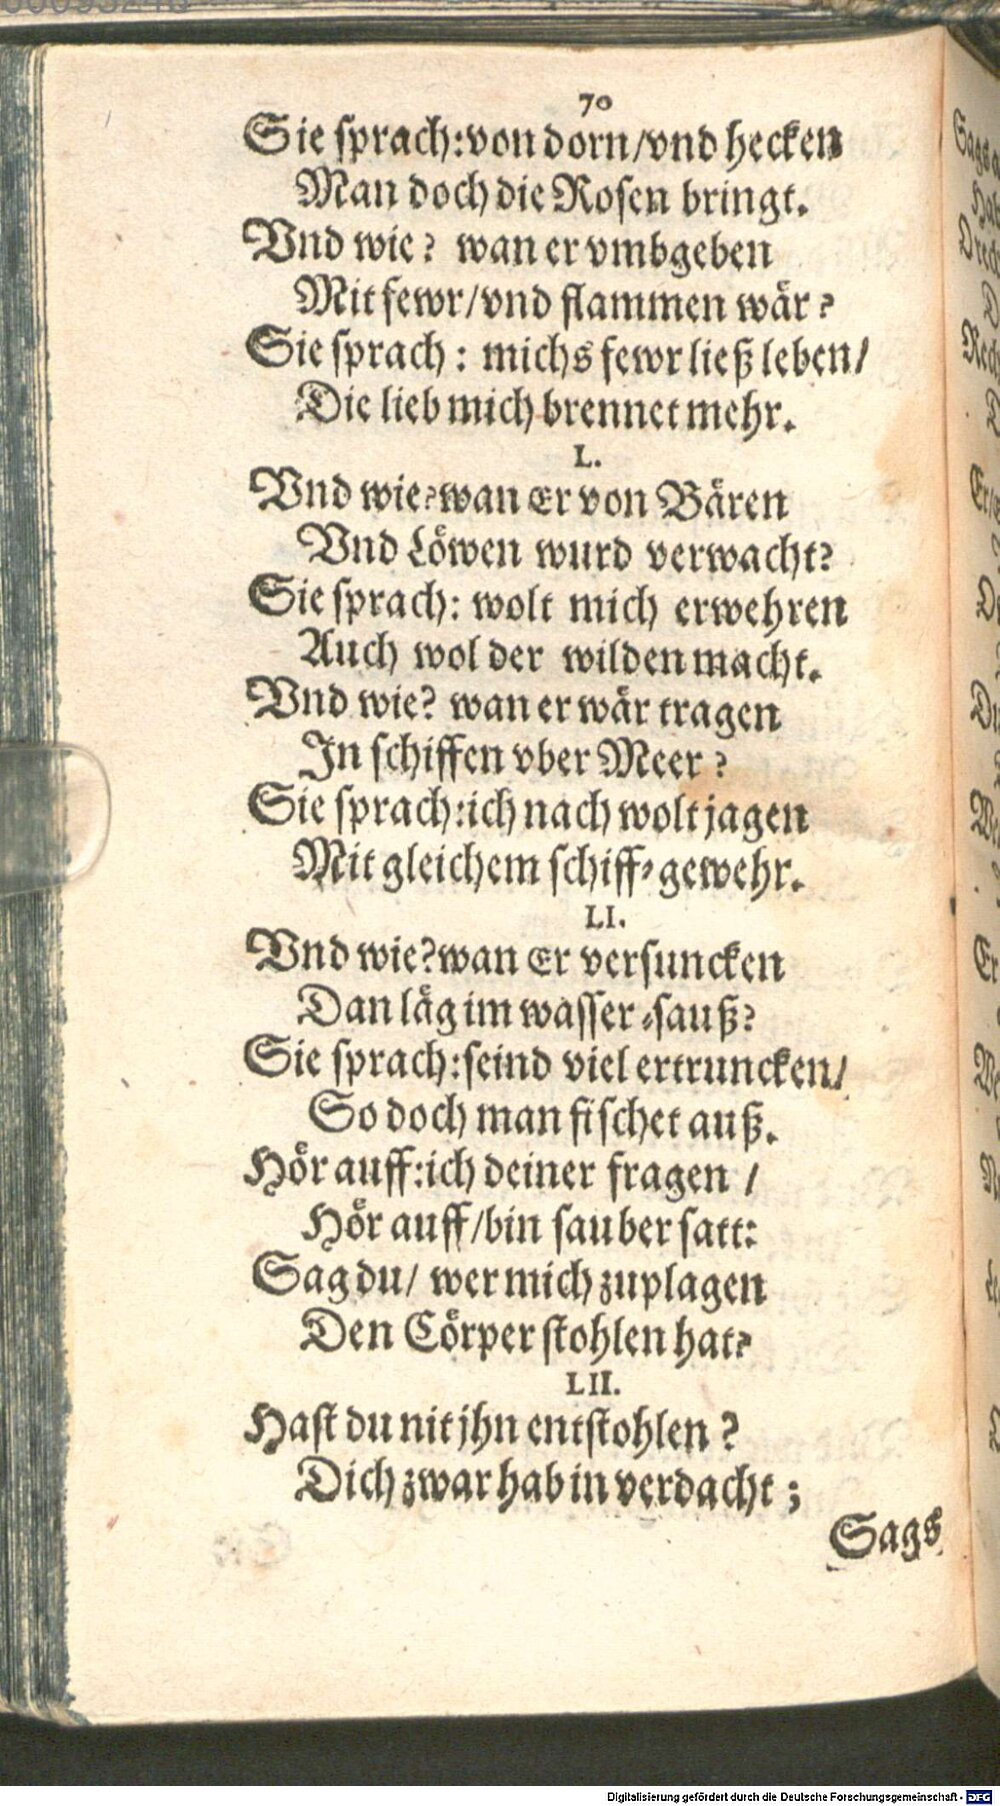 70
Sie sprach: von dorn/ vnd hecken
Man doch die Rosen bringt.
Vnd wie? wan er vmbgeben
Mit fewr/ vnd flammen wär?
Sie sprach: michs fewr ließ leben/
Die lieb mich brennet mehr.
L.
Vnd wie? wan Er von Bären
Vnd Löwen wurd verwacht?
Sie sprach: wolt mich erwehren
Auch wol der wilden macht.
Vnd wie? wan er wär tragen
In schiffen vber Meer?
Sie sprach: ich nach wolt jagen
Mit gleichem schiff-gewehr.
LI.
Vnd wie? wan Er versuncken
Dan läg im wasser-sauß?
Sie sprach: seind viel ertruncken/
So doch man fischet auß.
Hör auff: ich deiner fragen /
Hör auff/ bin sauber satt:
Sag du/ wer mich zuplagen
Den Cörper stohlen hat?
LII.
Hast du nit jhn entstohlen?
Dich zwar hab in verdacht;
Sags
Digitalisierung gefördert durch die Deutsche Forschungsgemeinschaft - DFG